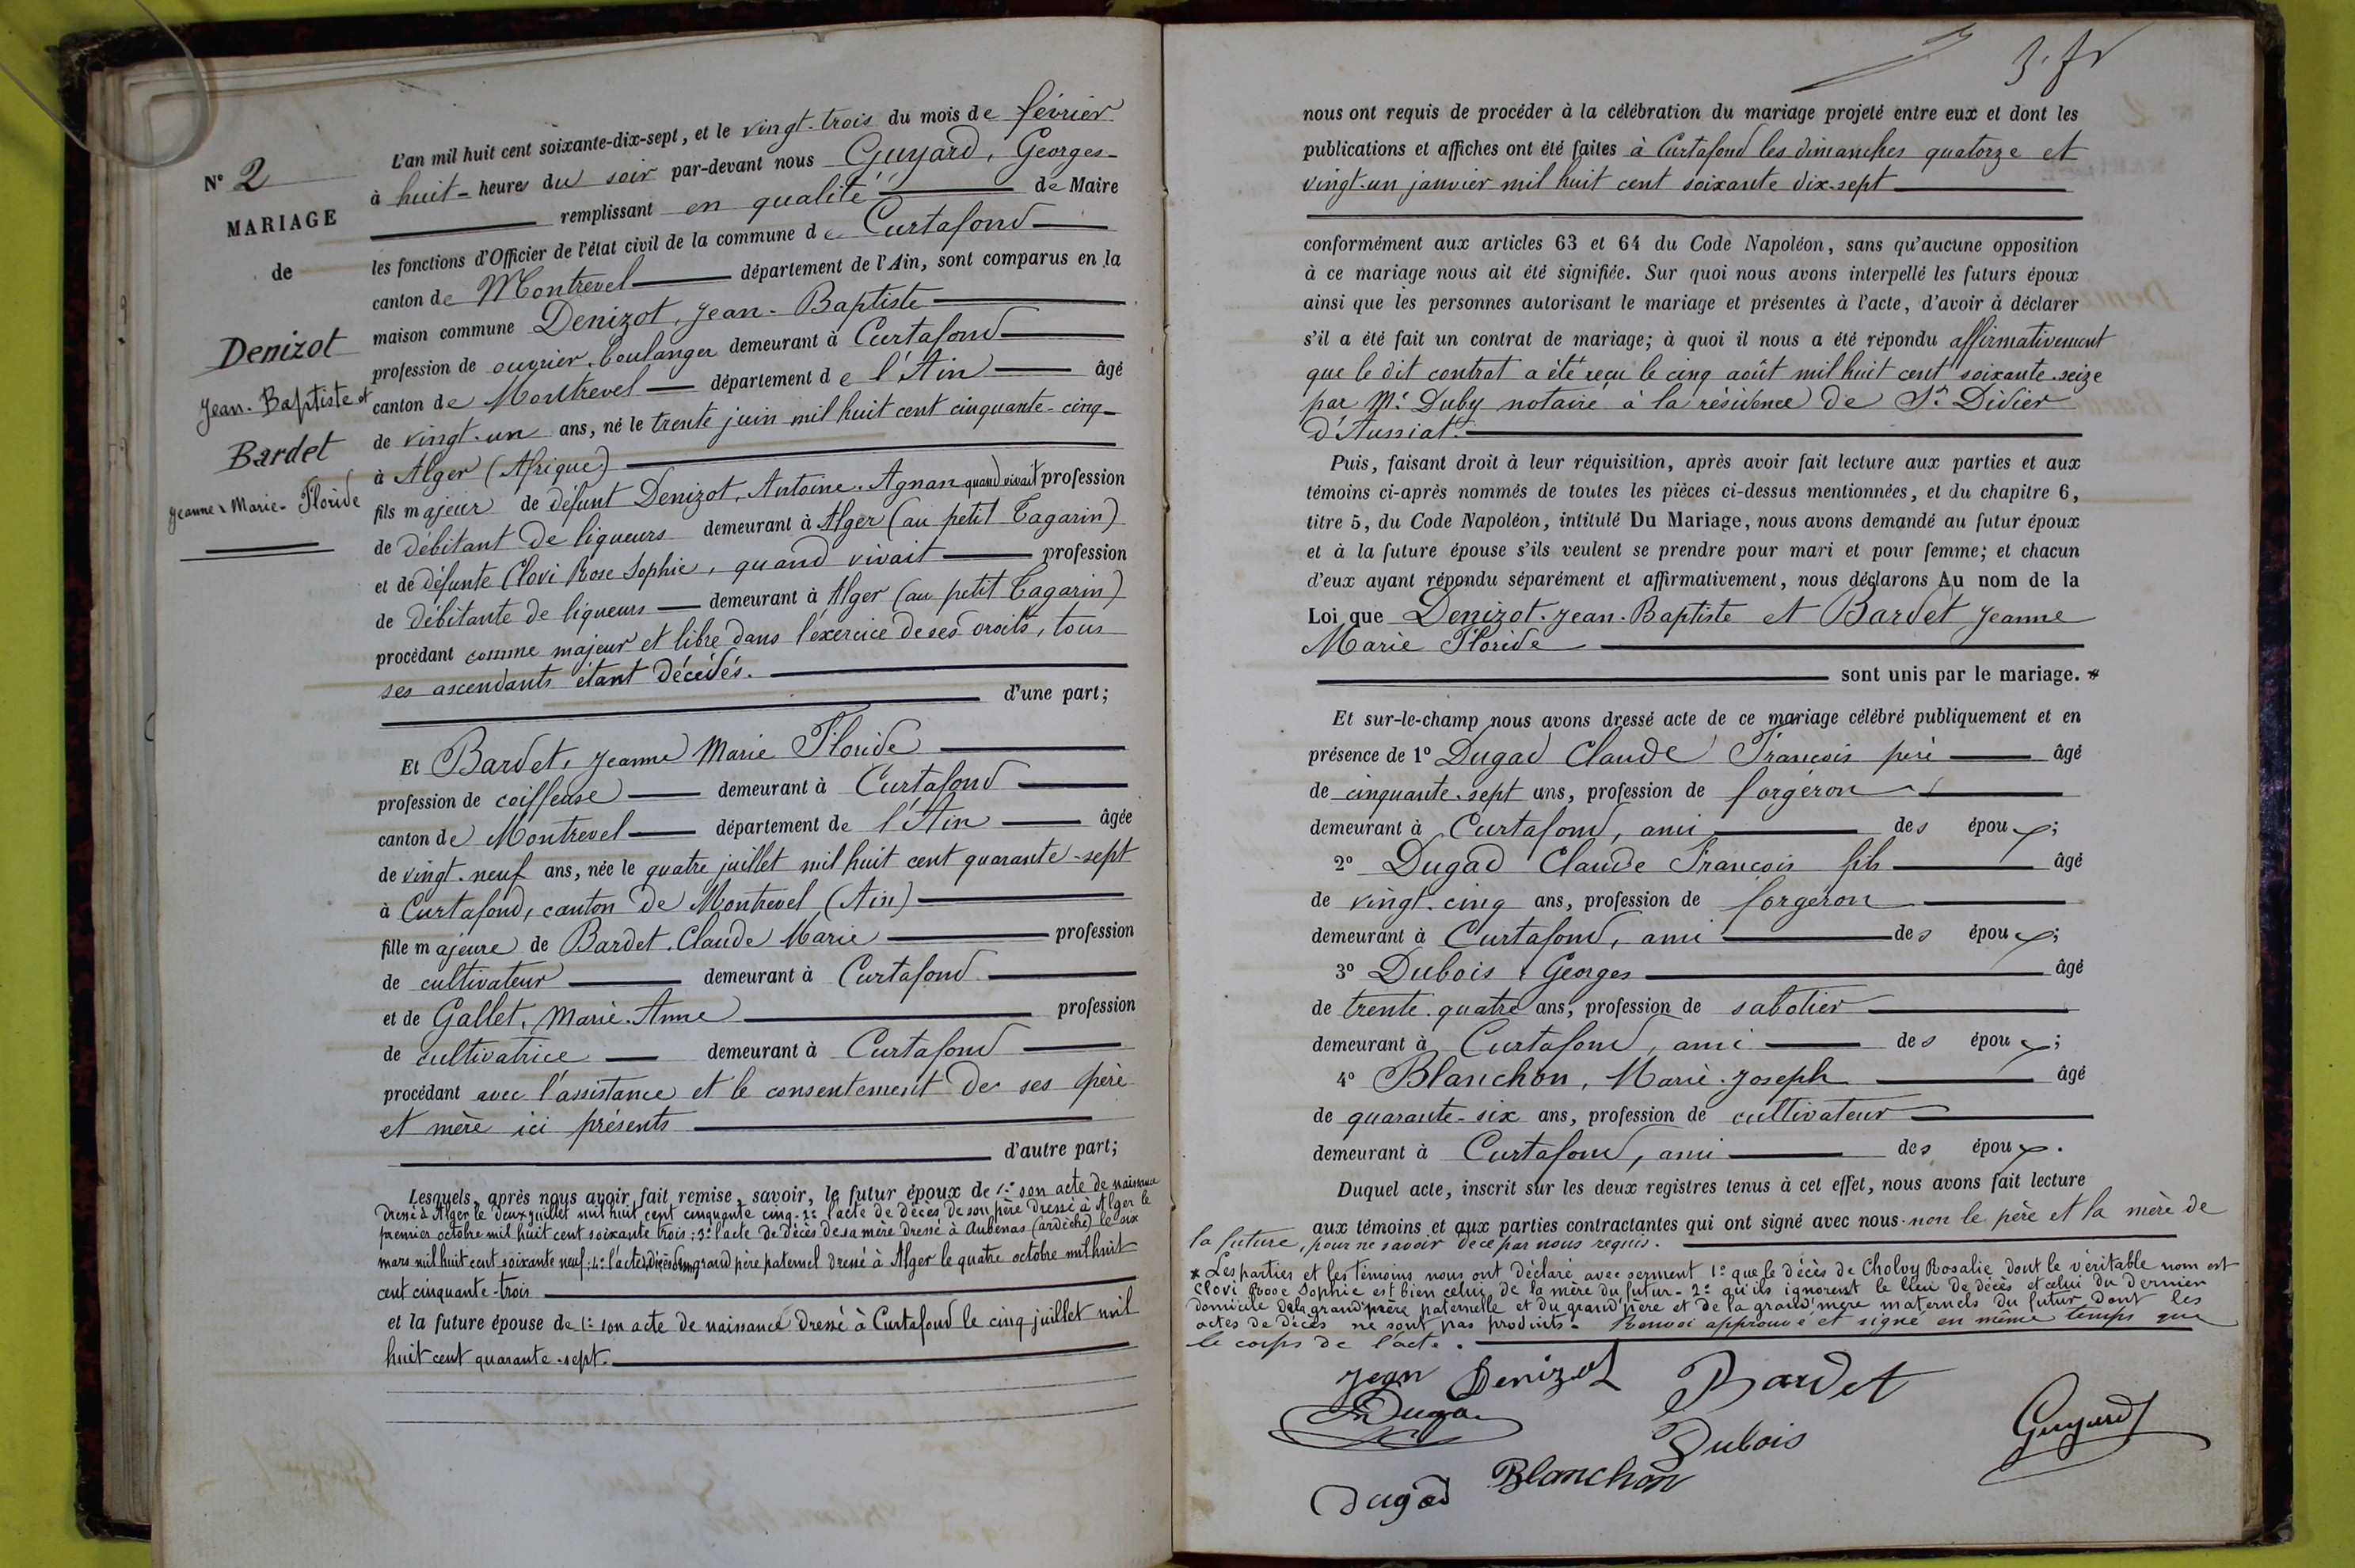 N° 2
MARIAGE
de
Denizot
Jean-Baptiste et
Bardet
Jeanne-Marie-Floride
L'an mil huit cent soixante-dix-sept, et le vingt-trois du mois de février
à huit heures du soir par-devant nous Guyard, Georges
remplissant en qualité de Maire
les fonctions d'Officier de l'état civil de la commune de Curtafond
canton de Montrevel département de l'Ain, sont comparus en la
maison commune Denizot, Jean-Baptiste
profession de ouvrier boulanger demeurant à Curtafond
canton de Montrevel département de l'Ain âgé
de vingt-un ans, né le trente juin mil huit cent cinquante-cinq
à Alger (Afrique)
fils majeur de défunt Denizot, Antoine Agnan quand vivait profession
de débitant de liqueurs demeurant à Alger (au petit Tagarin)
et de défunte Clovi Rose Sophie, quand vivait profession
de débitante de liqueurs demeurant à Alger (au petit Tagarin)
procédant comme majeur et libre dans l'exercice de ses droits, tous
ses ascendants étant décédés.
d'une part;
Et Bardet, Jeanne Marie Floride
profession de coiffeuse demeurant à Curtafond
canton de Montrevel département de l'Ain âgée
de vingt-neuf ans, née le quatre juillet mil huit cent quarante-sept
à Curtafond, canton de Montrevel (Ain)
fille majeure de Bardet, Claude Marie profession
de cultivateur demeurant à Curtafond
et de Gallet, Marie-Anne profession
de cultivatrice demeurant à Curtafond
procédant avec l'assistance et le consentement de ses père
et mère ici présents
d'autre part;
Lesquels, après nous avoir fait remise, savoir, le futur époux de 1° son acte de naissance
dressé à Alger le deux juillet mil huit cent cinquante cinq - 2° l'acte de décès de son père dressé à Alger le
premier octobre mil huit cent soixante trois; 3° l'acte de décès de sa mère dressé à Aubenas (ardèche) le six
mars mil huit cent soixante neuf; 4° l'acte de décès de son grand père paternel dressé à Alger le quatre octobre mil huit
cent cinquante-trois
et la future épouse de 1° son acte de naissance dressé à Curtafond le cinq juillet mil
huit cent quarante-sept.
nous ont requis de procéder à la célébration du mariage projeté entre eux et dont les
publications et affiches ont été faites à Curtafond les dimanches quatorze et
vingt-un janvier mil huit cent soixante dix-sept
conformément aux articles 63 et 64 du Code Napoléon, sans qu'aucune opposition
à ce mariage nous ait été signifiée. Sur quoi nous avons interpellé les futurs époux
ainsi que les personnes autorisant le mariage et présentes à l'acte, d'avoir à déclarer
s'il a été fait un contrat de mariage; à quoi il nous a été répondu affirmativement
que le dit contrat a été reçu le cinq août mil huit cent soixante-seize
par Me Duby notaire à la résidence de St Didier
d'Aussiat.
Puis, faisant droit à leur réquisition, après avoir fait lecture aux parties et aux
témoins ci-après nommés de toutes les pièces ci-dessus mentionnées, et du chapitre 6,
titre 5, du Code Napoléon, intitulé Du Mariage, nous avons demandé au futur époux
et à la future épouse s'ils veulent se prendre pour mari et pour femme; et chacun
d'eux ayant répondu séparément et affirmativement, nous déclarons Au nom de la
Loi que Denizot Jean-Baptiste et Bardet Jeanne
Marie Floride
sont unis par le mariage. *
Et sur-le-champ nous avons dressé acte de ce mariage célébré publiquement et en
présence de 1° Dugad Claude François père âgé
de cinquante-sept ans, profession de forgeron
demeurant à Curtafond, ami des époux;
2° Dugad Claude François fils âgé
de vingt-cinq ans, profession de forgeron
demeurant à Curtafond, ami des époux;
3° Dubois, Georges âgé
de trente-quatre ans, profession de sabotier
demeurant à Curtafond, ami des époux;
4° Blanchon, Marie-Joseph âgé
de quarante-six ans, profession de cultivateur
demeurant à Curtafond, ami des époux.
Duquel acte, inscrit sur les deux registres tenus à cet effet, nous avons fait lecture
aux témoins et aux parties contractantes qui ont signé avec nous non le père et la mère de
la future, pour ne savoir de ce par nous requis.
* Les parties et les témoins nous ont déclaré avec serment 1° que le décès de Cholvy Rosalie dont le véritable nom est
Clovi Rose Sophie est bien celui de la mère du futur - 2° qu'ils ignorent le lieu de décès et celui du dernier
domicile de la grand'mère paternelle et du grand'père et de la grand'mère maternels du futur dont les
actes de décès ne sont pas produits. Renvoi approuvé et signé en même temps que
le corps de l'acte.
Jean Denizot Bardet
Dugad
Dubois Guyard
Dugad Blanchon